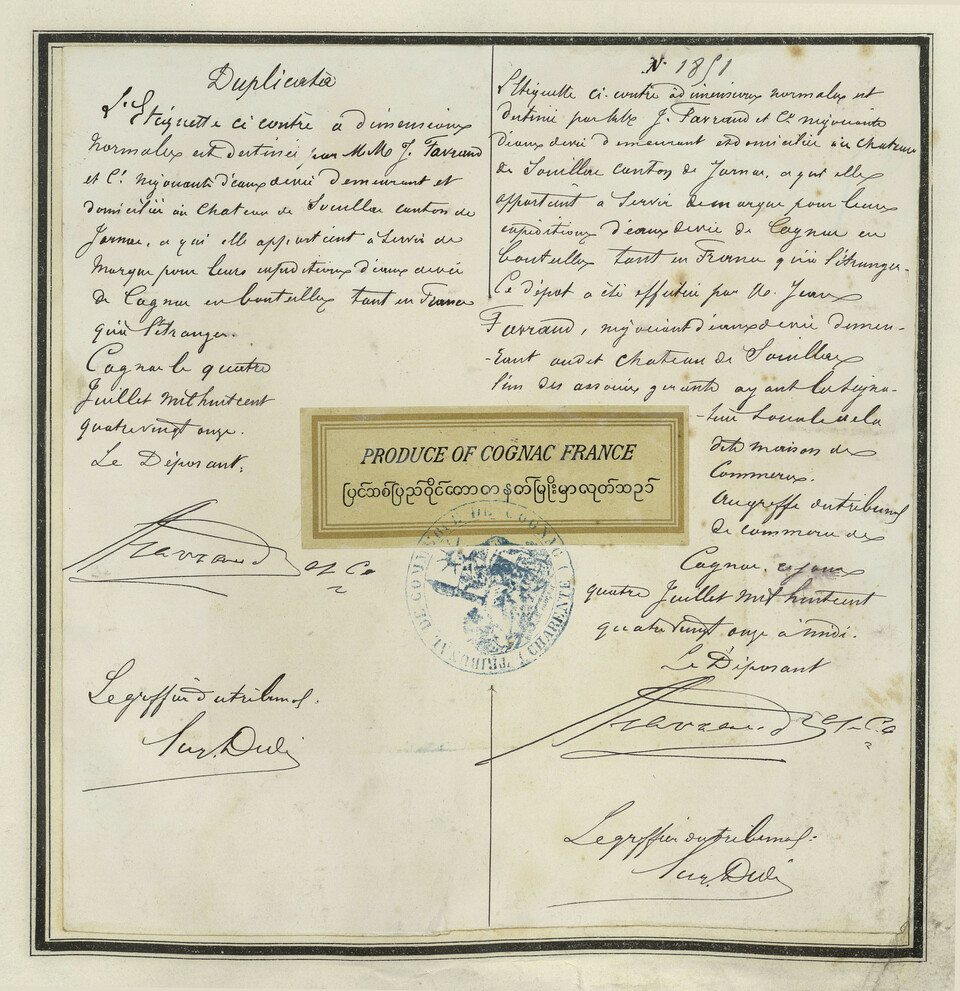 Duplicata
L'Etiquette ci contre à dimensions
normales est destinée par MM J. Farraud
et Cie négociants d'eaux de vie demeurant et
domiciliés au Chateau de Souillac canton de
Jarnac, a qui elle appartient à servir de
marque pour leurs expéditions d'eaux de vie
de Cognac en bouteilles tant en France
qu'à l'étranger.
Cognac le quatre
Juillet mil huit cent
quatre vingt onze.
Le Déposant:
Farraud et Co
Le greffier du tribunal.
N° 1851
L'Etiquette ci-contre à dimensions normales est
destinée par MM J. Farraud et Cie négociants
d'eaux de vie demeurant et domiciliés au chateau
de Souillac canton de Jarnac, a qui elle
appartient a servir de marque pour leurs
expéditions d'eaux de vie de Cognac en
bouteilles tant en France qu'à l'étranger.
Ce dépot a été effectué par M. Jean
Farraud, négociant d'eaux de vie demeu-
-rant audit chateau de Souillac
l'un des associés gerants ayant la signa-
-ture sociale de la
dite maison de
Commerce.
Au greffe du tribunal
de commerce de
Cognac, ce jour
quatre Juillet mil huit cent
quatre vingt onze à midi.
Le Déposant
Farraud et Co
Le greffier du tribunal:
PRODUCE OF COGNAC FRANCE
ပြင်သစ်ပြည်ဝိုင်တောတနတ်မြို့မှာလုတ်သည်
TRIBUNAL DE COMMERCE DE COGNAC (CHARENTE)